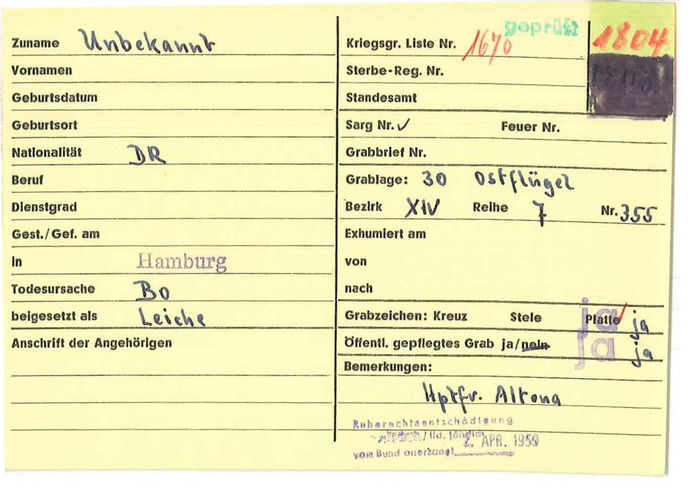 geprüft
1804
Zuname Unbekannt
Vornamen
Geburtsdatum
Geburtsort
Nationalität DR
Beruf
Dienstgrad
Gest./Gef. am
in Hamburg
Todesursache Bo
beigesetzt als Leiche
Anschrift der Angehörigen
Kriegsgr. Liste Nr. 1670
Sterbe-Reg. Nr.
Standesamt
Sarg Nr. ✓ Feuer Nr.
Grabbrief Nr.
Grablage: 30 Ostflügel
Bezirk XIV Reihe 7 Nr. 355
Exhumiert am
von
nach
Grabzeichen: Kreuz Stele Platte ja ja
Öffentl. gepflegtes Grab ja/nein ja ja
Bemerkungen:
Hptfr. Altona
Ruherechtsentschädigung
/ lfd. jährlich 2. APR. 1959
vom Bund anerkannt